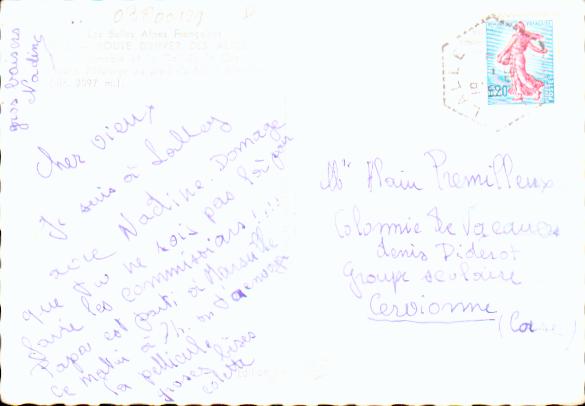 Les Belles Alpes Françaises
ROUTE D'HIVER DES ALPES
gros baisers
Nadine
Cher vieux
Je suis à Lalley
avec Nadine. Domage
que tu ne sois pas là pour
faire les commissions!...
Papa est parti à Marseille
ce matin à 7h. on
la pellicule
grosses bises
colette
LALLEY
0,20
POSTES
Mr Alain Premilleux
Colonnie de Vacances
denis Diderot
groupe scolaire
Cervionne
(Corse)